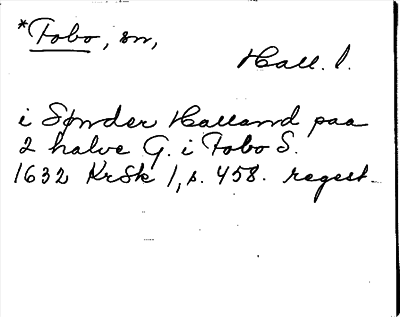 *Fobo, sn,
Hall. l.
i Sønder Halland paa
2 halve G. i Fobo S.
1632 KrSk 1, s. 458. regest